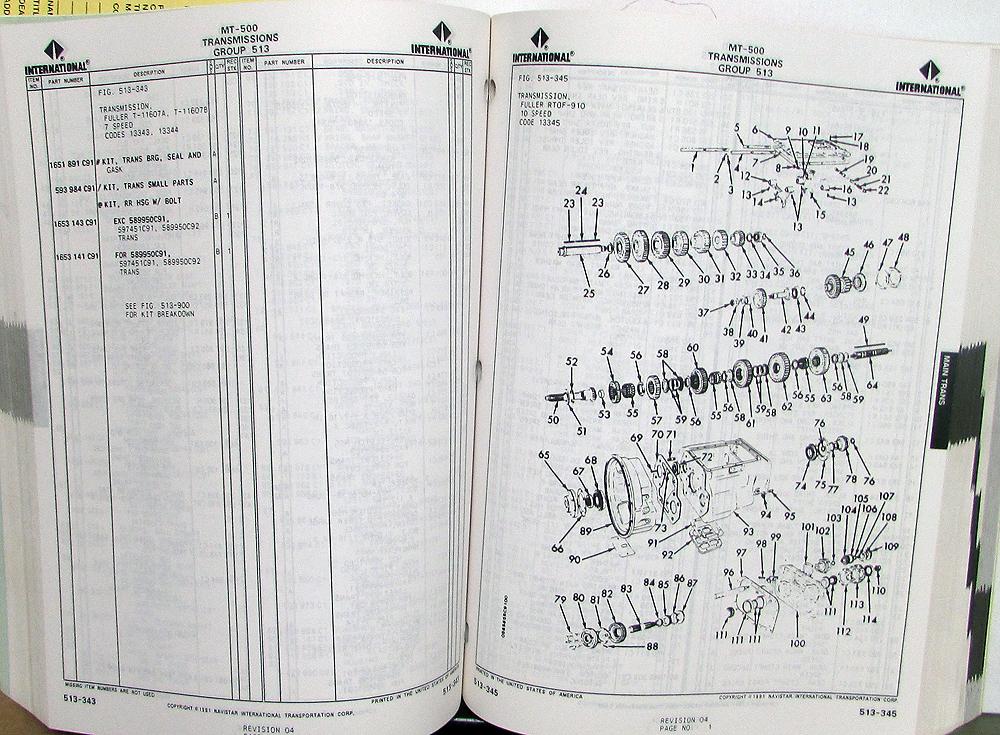 MT-500
TRANSMISSIONS
GROUP 513
INTERNATIONAL®
INTERNATIONAL®
ITEM NO. PART NUMBER DESCRIPTION QTY REC STK ITEM NO. PART NUMBER DESCRIPTION QTY REC STK
FIG. 513-343
TRANSMISSION,
FULLER T-11607A, T-11607B
7 SPEED
CODES 13343, 13344
1651 891 C91 # KIT, TRANS BRG, SEAL AND A
GASK
593 984 C91 / KIT, TRANS SMALL PARTS A
@ KIT, RR HSG W/ BOLT
1653 143 C91 EXC 589950C91, B 1
597451C91, 589950C92
TRANS
1653 141 C91 FOR 589950C91, B 1
597451C91, 589950C92
TRANS
SEE FIG. 513-900
FOR KIT BREAKDOWN
MISSING ITEM NUMBERS ARE NOT USED
513-343
COPYRIGHT ©1991 NAVISTAR INTERNATIONAL TRANSPORTATION CORP.
PRINTED IN THE UNITED STATES OF
REVISION 04
MT-500
TRANSMISSIONS
GROUP 513
INTERNATIONAL®
INTERNATIONAL®
FIG. 513-345
TRANSMISSION,
FULLER RTOF-910
10 SPEED
CODE 13345
5 6 9 10 11 17
18
1 2 3 4 7 8 19
20
12 21
13 16 22
13 14 15 13
13
24
23 23
25 26 27 28 29 30 31 32 33 34 35 36
45 46 47 48
37 38 39 40 41 42 43 44
49
52 54 56 58 60
50 51 53 55 57 59 56 55 56 58 61 59 58 62 56 55 63 56 58 59 64
65 67 68 69 70 71 72
76
74 75 77 78 76
66 89 90 91 73 92 93 94 95
96 97 98 99 101 102 103 104 105 106 107 108 109
110
111 111 111 100 111 112 113 114
79 80 81 82 83 84 85 86 87
88
MAIN TRANS
PRINTED IN THE UNITED STATES OF AMERICA
513-345
COPYRIGHT ©1991 NAVISTAR INTERNATIONAL TRANSPORTATION CORP.
513-345
REVISION 04
PAGE NO. 1